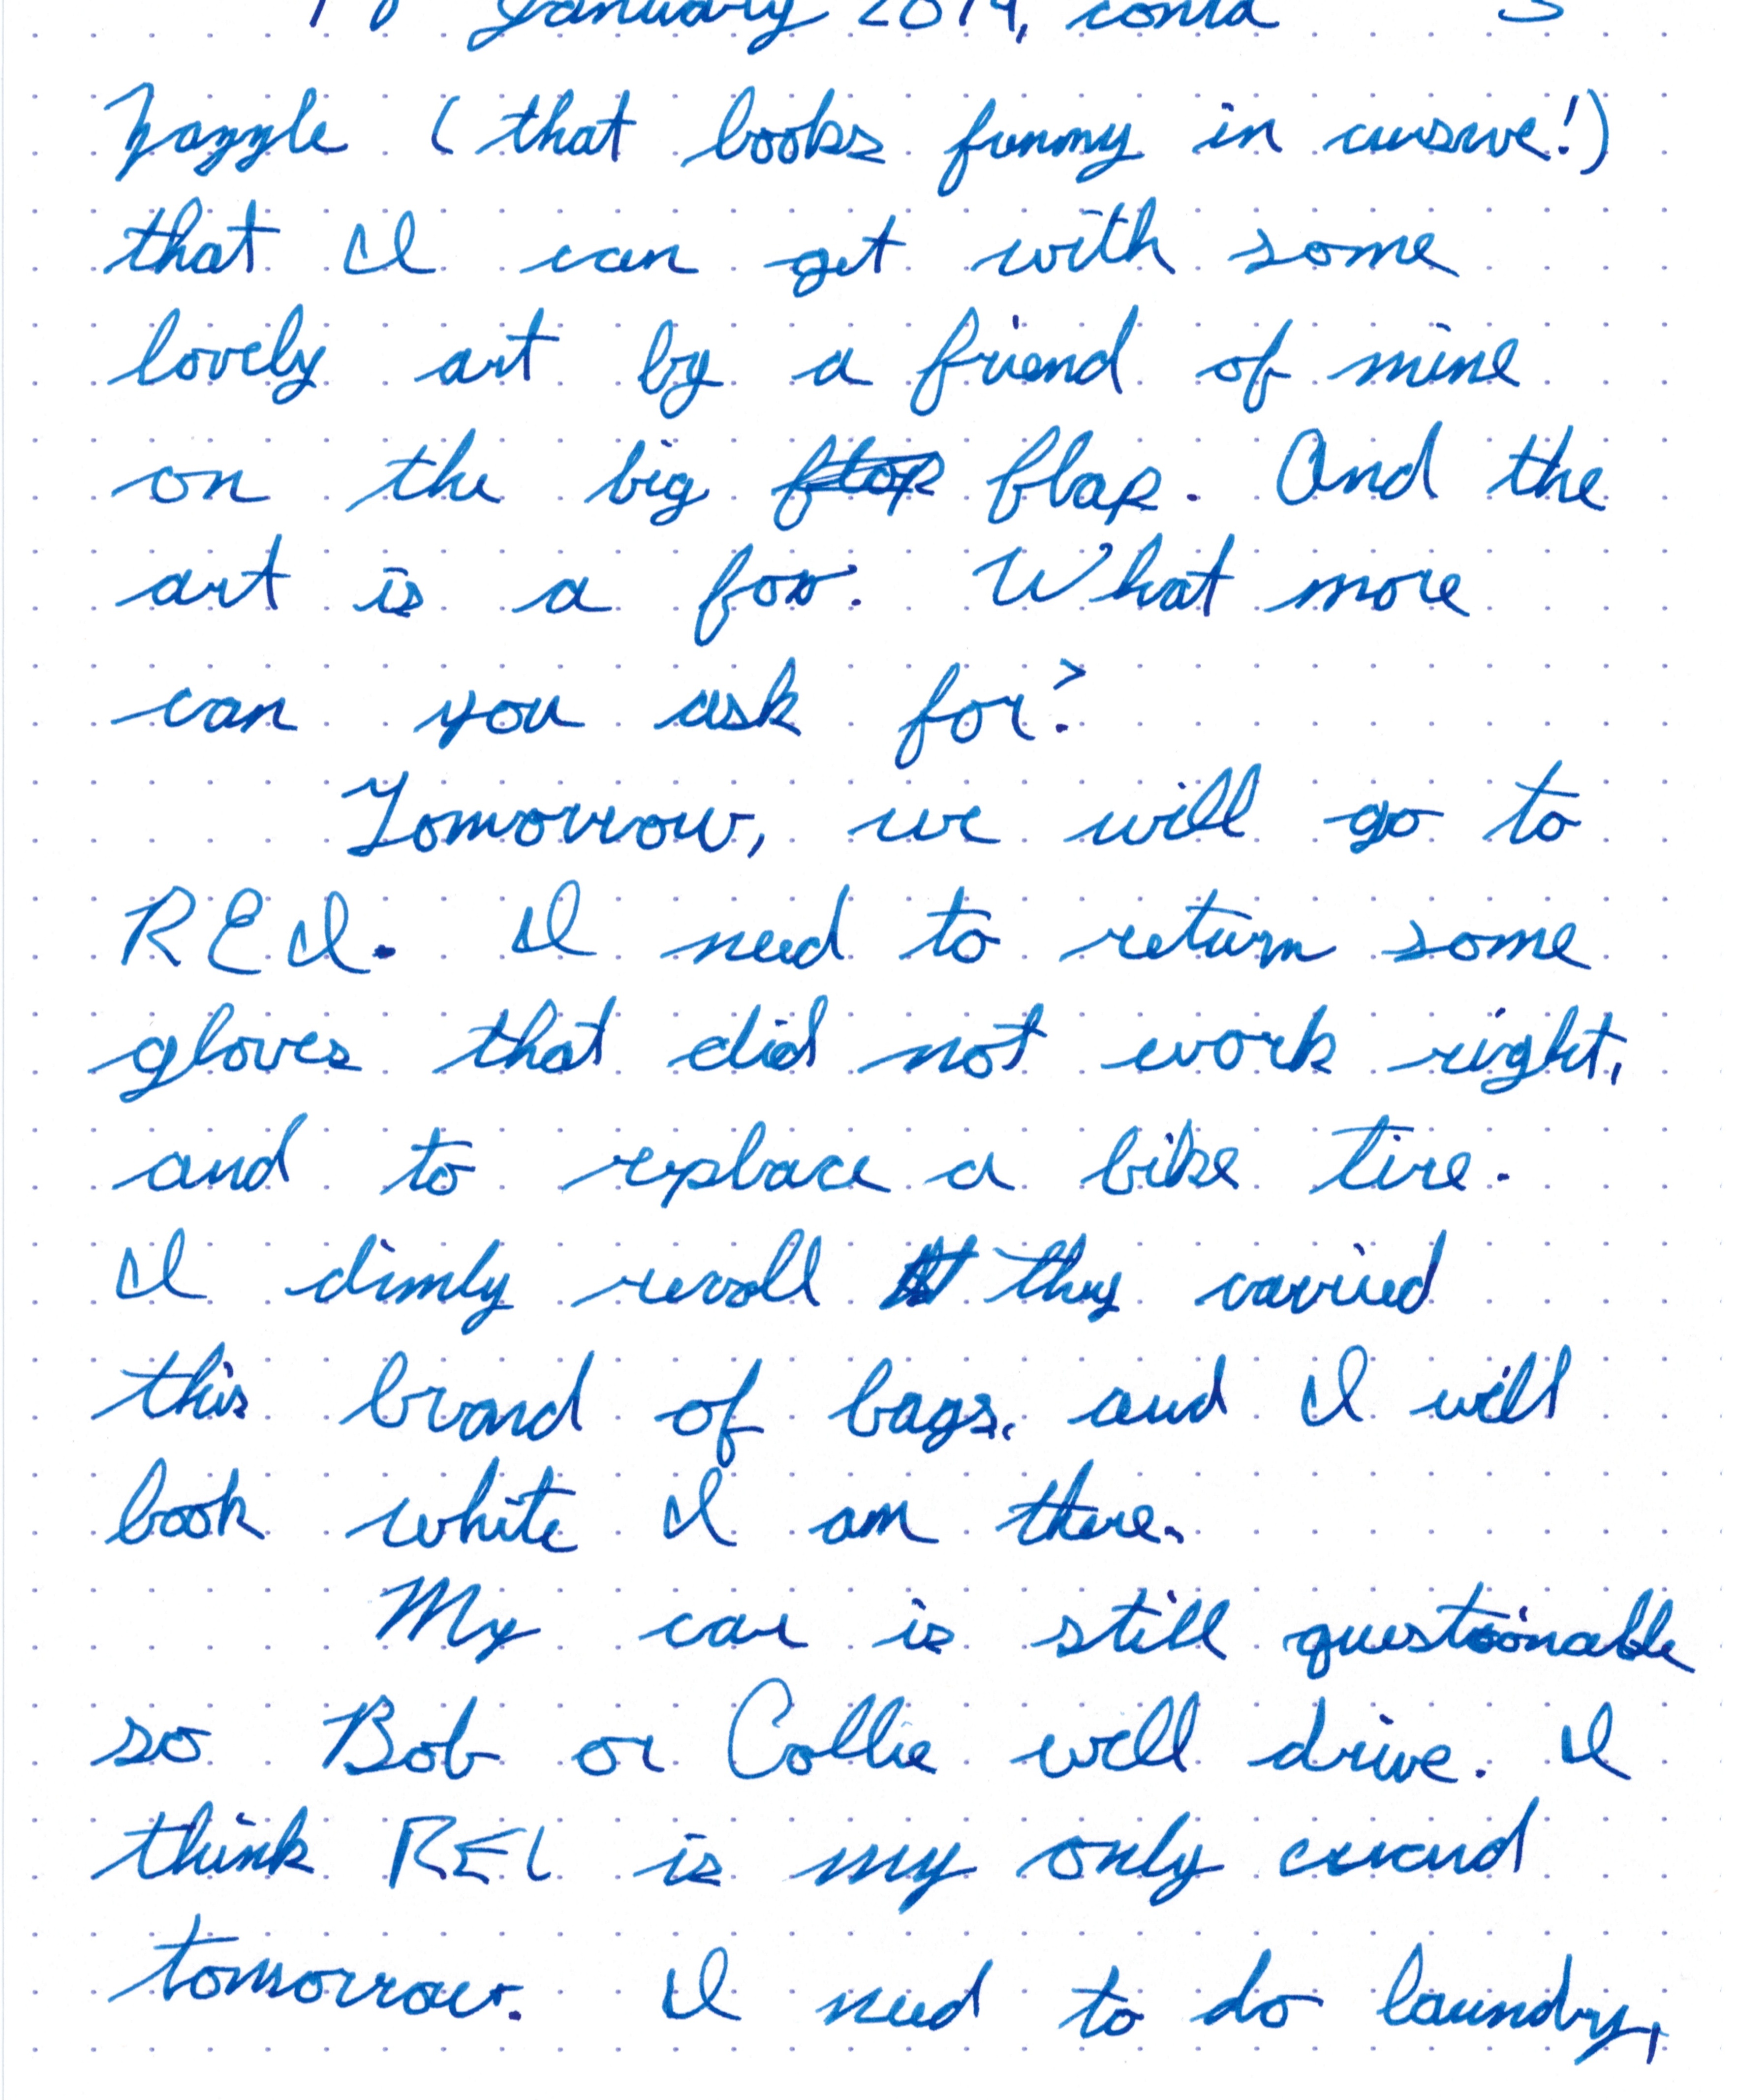 January 2019, contd 3
Zazzle (that looks funny in cursive!)
that I can get with some
lovely art by a friend of mine
on the big flap. And the
art is a fox. What more
can you ask for?
Tomorrow, we will go to
REI. I need to return some
gloves that did not work right,
and to replace a bike tire.
I dimly recall they carried
this brand of bags, and I will
look while I am there.
My car is still questionable
so Bob or Collie will drive. I
think REI is my only errand
tomorrow. I need to do laundry,